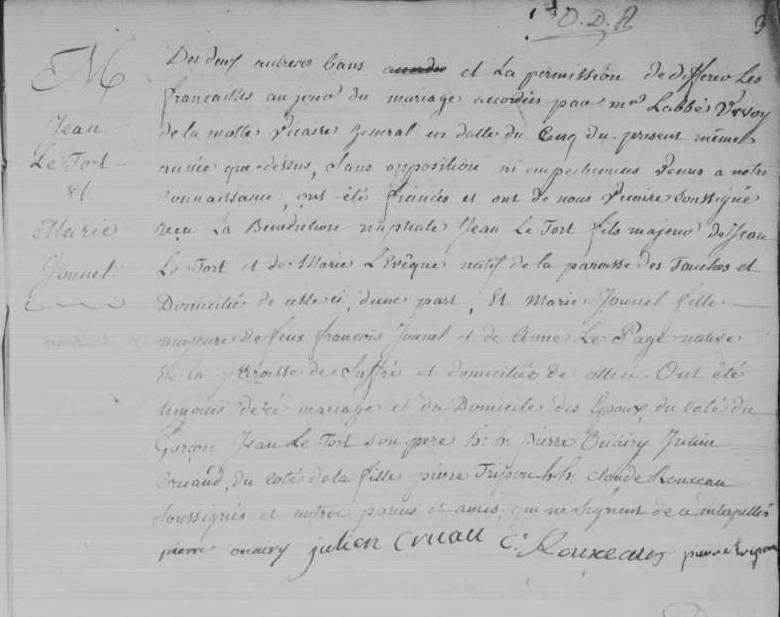 O. D. A
3
M
Jean
Le Fort
&
Marie
Jounel
Des deux autres bans et La permission de differer Les
fiancailles au jour du mariage accordées par mr Labbé Urvoy
de la motte Vicaire general en datte du Cinq du present même
année que dessus, Sans opposition ni empechemens Venus a notre
Connaissance, ont été fiancés et ont de nous Vicaire Soussigné
reçu La Benediction nuptiale Jean Le Fort fils majeur de Jean
Le Fort et de Marie L'Evêque natif de la paroisse des Touches et
Domicilié de celle ci, d'une part, Et Marie Jounel fille
majeure de feus francois Jounel et de Anne Le Page native
de la parroisse de Saffré et domiciliée de celle ci. Ont été
temoins de ce mariage et du Domicile des Epoux, du coté du
Garçon Jean Le Fort son pere h. h. pierre Julien
Cruaud, du coté de la fille pierre h. h. claude Rouxeau
Soussignés et autres parens et amis qui ne Signent de ce interpellés
pierre julien Cruau C. Rouxeau pierre